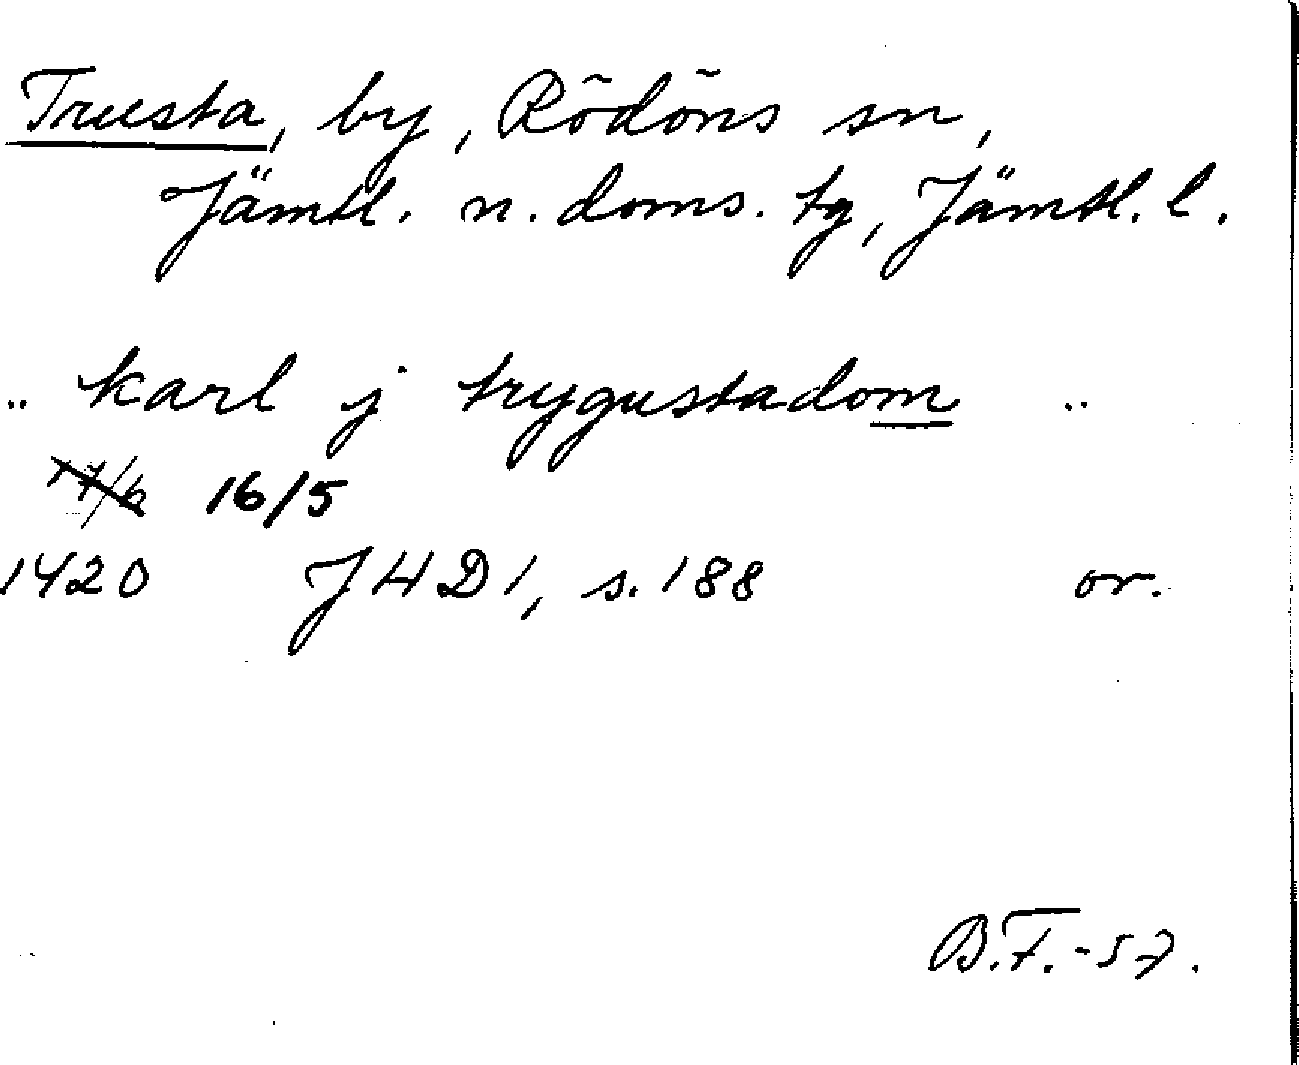 Trusta, by, Rödöns sn,
Jämtl. n. doms. tg, Jämtl. l.
.. karl j trygustadom ..
16/5
1420 JHD 1, s. 188 or.
B.F.-57.